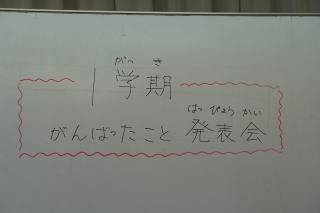 がっ き
1学期
はっ ぴょう かい
がんばったこと 発表会